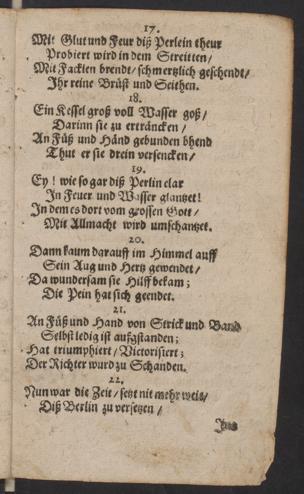 17.
Mit Glut und Feur diß Perlein theur
Probiert wird in dem Streitten/
Mit Facklen brendt/ schmertzlich geschendt/
Ihr reine Brüst und Seithen.
18.
Ein Kessel groß voll Wasser goß/
Darinn sie zu ertráncken/
An Füß und Händ gebunden bhend
Thut er sie drein versencken/
19.
Ey! wie so gar diß Perlin clar
In Feuer und Wasser glantzet!
In dem es dort vom grossen Gott/
Mit Allmacht wird umschantzet.
20.
Dann kaum darauff im Himmel auff
Sein Aug und Hertz gewendet/
Da wundersam sie Hilff bekam;
Die Pein hat sich geendet.
21.
An Füß und Hand von Strick und Band
Selbst ledig ist auffstanden;
Hat triumphiert/ Victorisiert;
Der Richter wurd zu Schanden.
22.
Nun war die Zeit/ setzt nit mehr weit/
Diß Berlin zu versetzen/